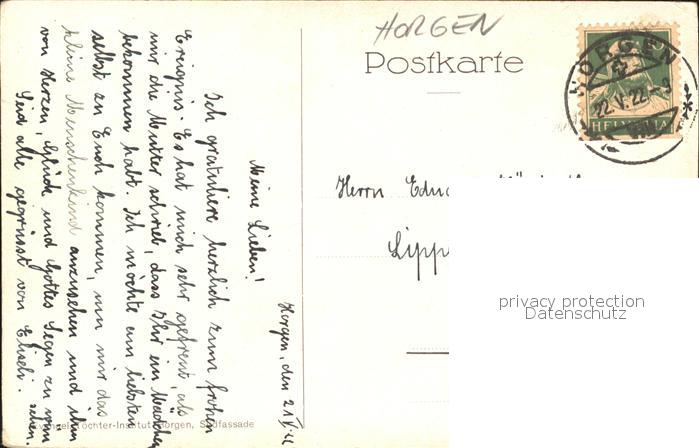 HORGEN
Postkarte
HORGEN
22.V.22.-9
HELVETIA
Herrn
privacy protection
Datenschutz
Horgen, den 21.V.22
Meine Lieben!
Ich gratuliere herzlich zum frohen
Ereignis. Es hat mich sehr gefreut, als
mir die Mutter schrieb, dass Ihr ein Mädchen
bekommen habt. Ich möchte am liebsten
selbst zu Euch kommen, um mir das
kleine Menschenkind anzusehen und ihm
von Herzen, Glück und Gottes Segen zu wün
schen.
Seid alle gegrüsst von Elisab.
Evangel. Töchter-Institut Horgen, Südfassade